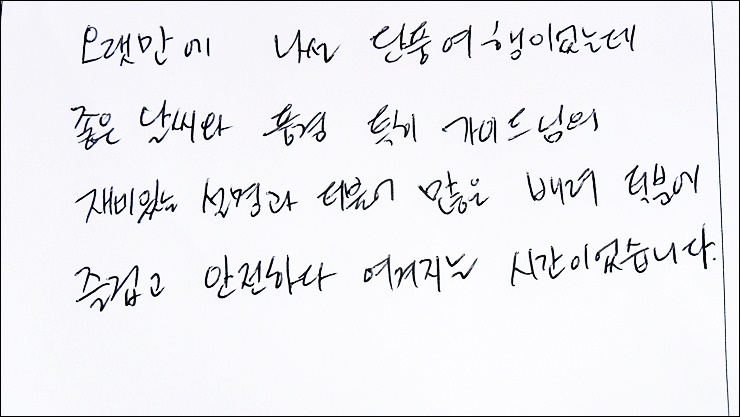 오랫만에 나선 단풍여행이었는데
좋은 날씨와 풍경 특히 가이드님의
재미있는 설명과 더불어 많은 배려 덕분에
즐겁고 안전하다 여겨지는 시간이었습니다.